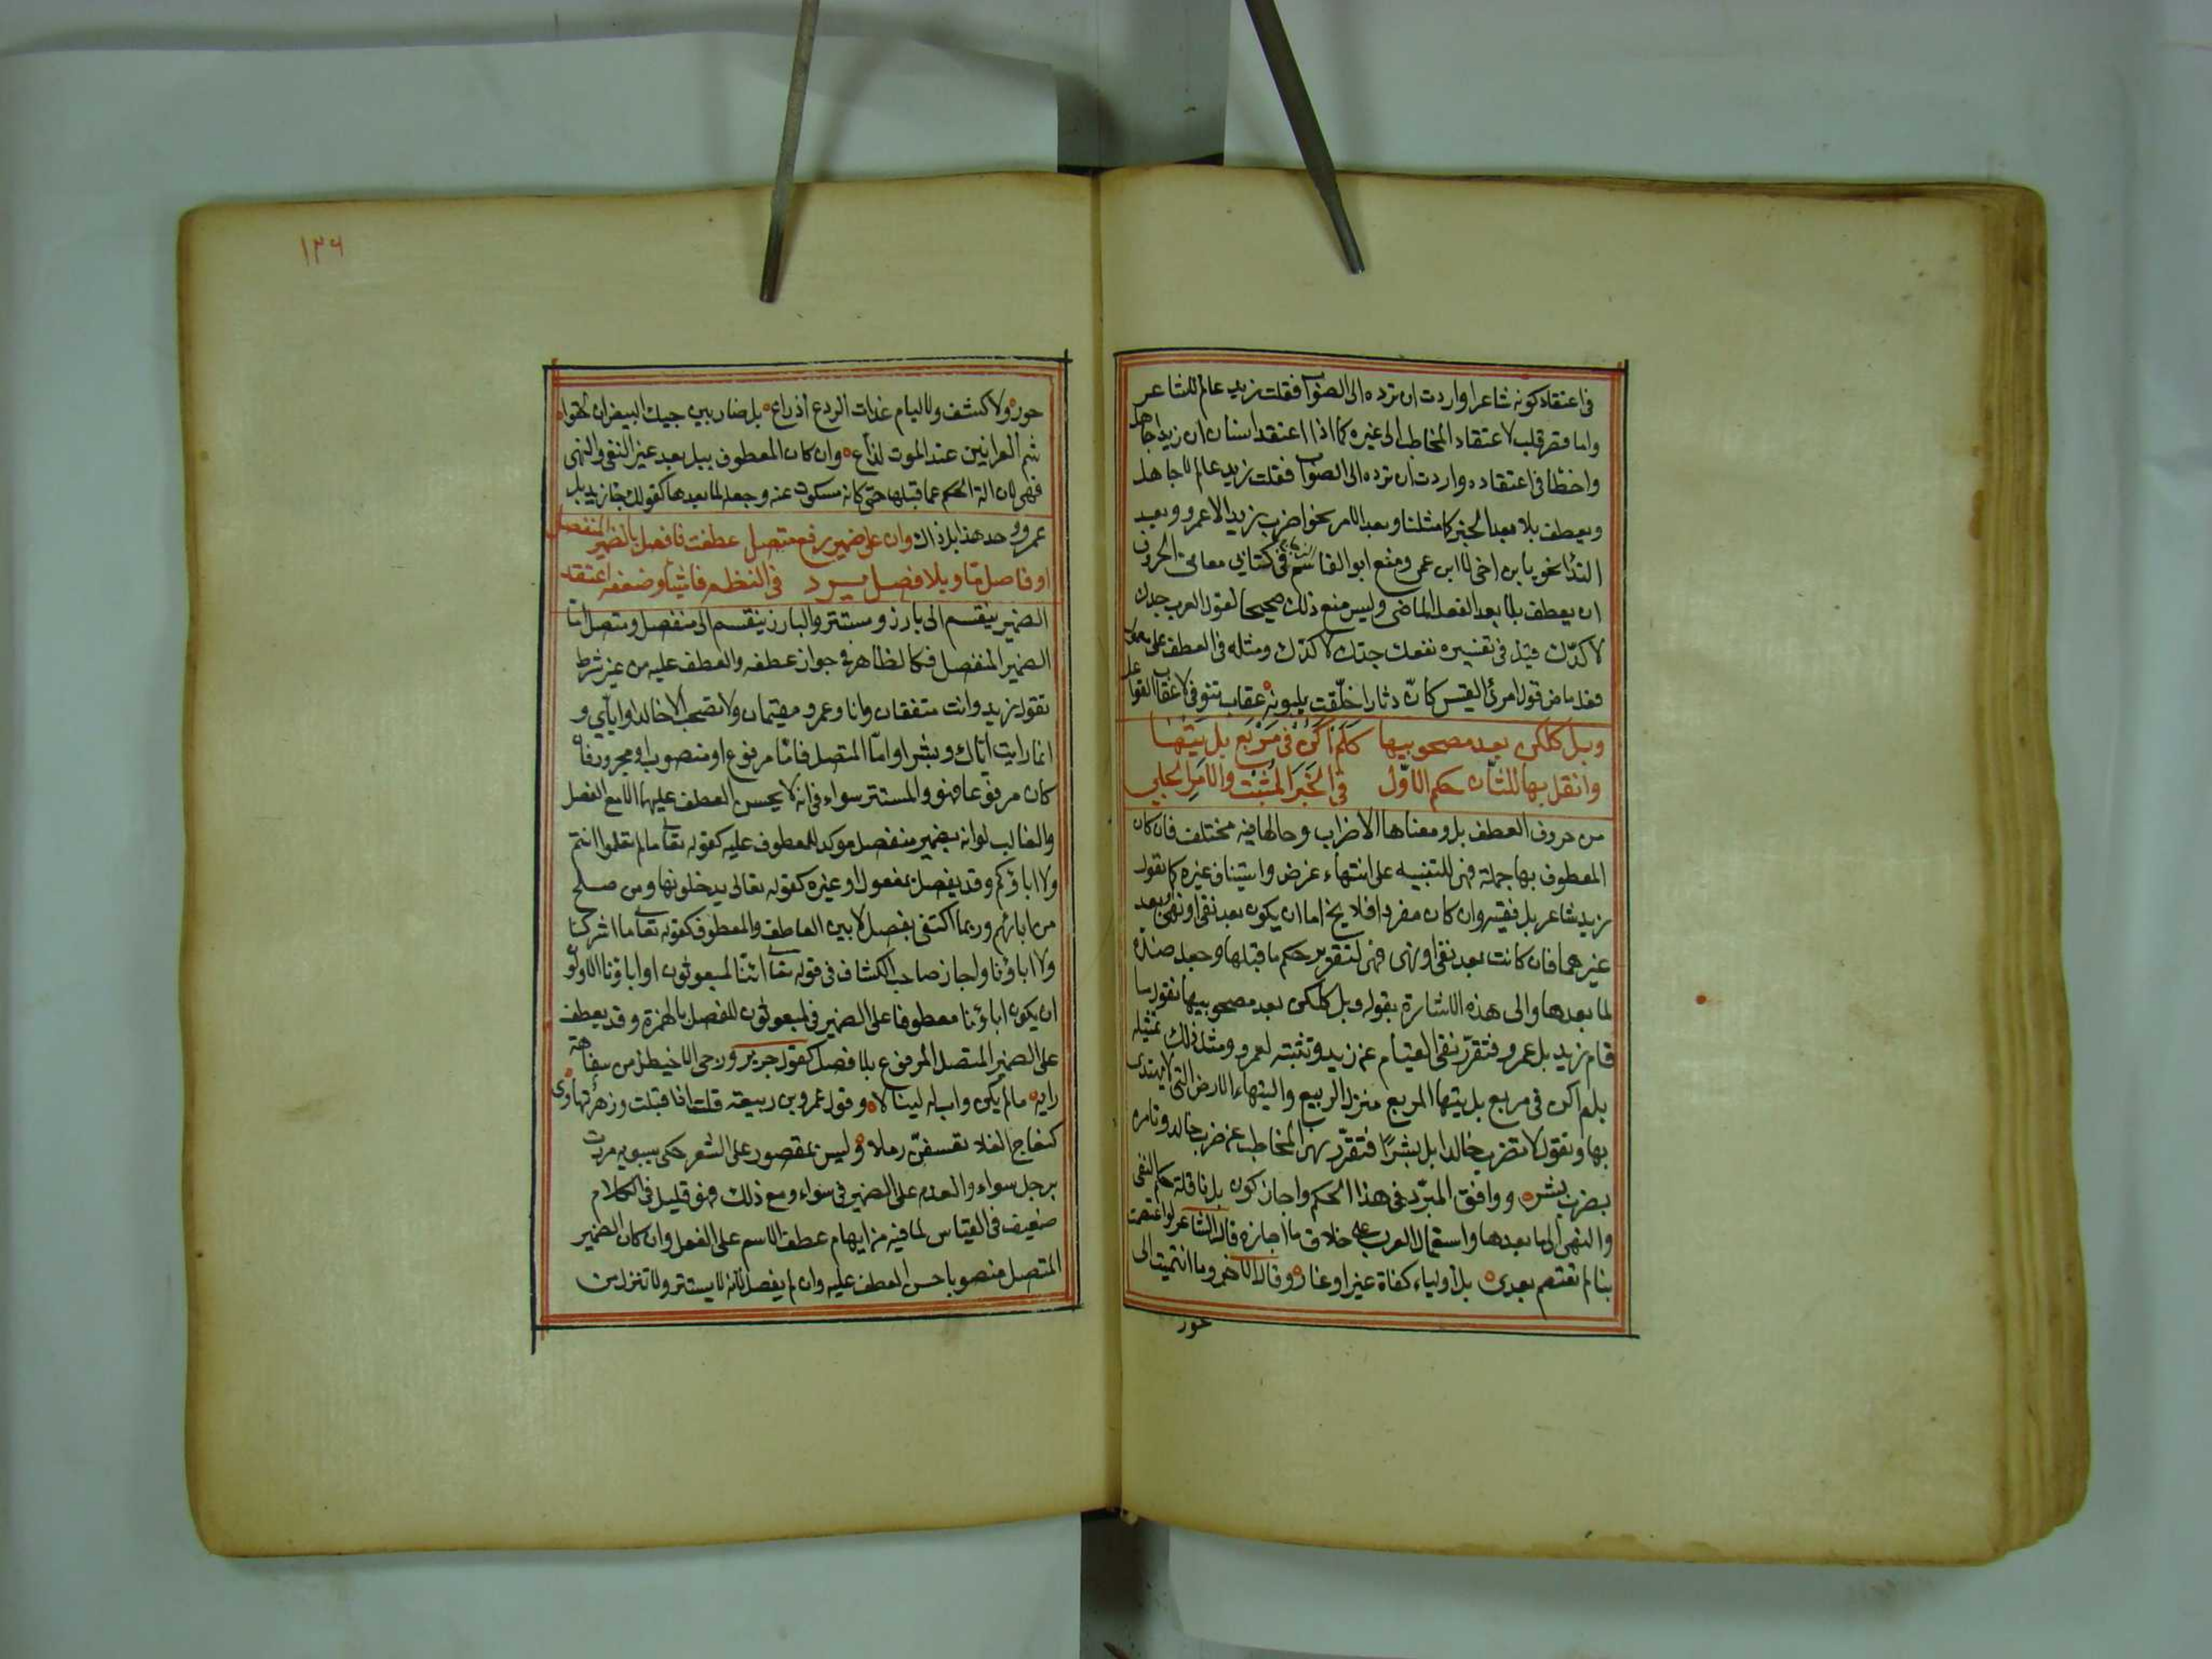 في اعتقاد كونه شاعرا واردت ان ترده الى الصواب فقلت زيد عالم لا شاعر
واما قصر قلب لاعتقاد المخاطب الى غيره كما اذا اعتقد انسان ان زيدا جاهل
واخطا في اعتقاده واردت ان ترده الى الصواب فقلت زيد عالم لا جاهل
ويعطف بلا بعد الخبر كما مثلنا وبعد الامر نحو اضرب زيدا لا عمرو وبعد
الندا نحو يا بن اخي لا ابن عمي ومنع ابو القاسم في كتابي معاني الحروف
ان يعطف بلا بعد الفعل الماضي وليس منع ذلك صحيحا لقول العرب جدك
لا كدك قيل في تفسيره نفعك جدك لا كدك ومثله في العطف على معمول
فعل ماض قول امرئ القيس كان دثارا حلقت بلبونه عقاب تنوفى لا عقاب القواعل
وبل كلكن بعد مصحوبيها كلم اكن في مربع بل تيها
وانقل بها للثان حكم الاول في الخبر المثبت والامر الجلي
من حروف العطف بل ومعناها الاضراب وحالها فيه مختلف فان كان
المعطوف بها جملة فهي للتنبيه على انتهاء غرض واستيناف غيره كما تقول
زيد شاعر بل فقيه وان كان مفردا فلا يخ اما ان يكون بعد نفي او نهي او بعد
غيرهما فان كانت بعد نفي او نهي فهي لتقرير حكم ما قبلها وجعل ضده
لما بعدها والى هذه الاشارة بقوله وبل كلكن بعد مصحوبيها تقول ما
قام زيد بل عمرو فتقرر نفي القيام عن زيد وتثبته لعمرو ومثل ذلك تمثيله
بلم اكن في مربع بل تيها المربع منزل الربيع والتيهاء الارض التي لا يهتدى
بها وتقول لا تضرب خالدا بل بشرا فتقرر نهي المخاطب عن ضرب خالد وتامره
بضرب بشر ووافق المبرد في هذا الحكم واجاز كون بل ناقلة حكم النفي
والنهي الى ما بعدها واستعمال العرب على خلاف ما اجازه قال الشاعر لو اعتصمت
بنا لم تعتصم بعدى بل اولياء كفاة غير اوغاد وقال الاخر وما انتميت الى
خور
١٣٦
خور ولا كشف ولا ليام غداة الروع اوزاع بل ضاربين حبيك البيض ان لحقوا
شم العرانين عند الموت لذاع وان كان المعطوف ببل بعد غير النفي والنهي
فهي لازالة الحكم عما قبلها حتى كانه مسكوت عنه وجعله لما بعدها كقولك جا زيد بل
عمرو وخذ هذا بل ذاك وان على ضمير رفع متصل عطفت فافصل بالضمير المنفصل
او فاصل ما وبلا فصل يرد في النظم فاشيا وضعفه اعتقد
الضمير ينقسم الى بارز ومستتر والبارز ينقسم الى منفصل ومتصل اما
الضمير المنفصل فكالظاهر في جواز عطفه والعطف عليه من غير شرط
تقول زيد وانت متفقان وانا وعمرو مقيمان ولا تصحب الا خالدا واياي و
انما رايت اياك وبشرا واما المتصل فاما مرفوع او منصوب او مجرور فان
كان مرفوعا فهو والمستتر سواء في انه لا يحسن العطف عليهما الا مع الفصل
والغالب لوانه بضمير منفصل موكد للمعطوف عليه كقوله تعالى ما لم تعلموا انتم
ولا اباؤكم وقد يفصل بمفعول او غيره كقوله تعالى يدخلونها ومن صلح
من ابائهم وربما اكتفى بفصل لا بين العاطف والمعطوف كقوله تعالى ما اشركنا
ولا اباؤنا واجاز صاحب الكشاف في قوله تعالى ائنا لمبعوثون او اباؤنا الاولون
ان يكون اباؤنا معطوفا على الضمير في لمبعوثون للفصل بالهمزة وقد يعطف
على الضمير المتصل المرفوع بلا فصل كقول جرير ورجى الاخيطل من سفاهة
رايه ما لم يكن واب له لينالا وقول عمرو بن ربيعة قلت اذا اقبلت وزهر تهادى
كنعاج الفلا تعسفن رملا وليس بمقصور على الشعر حكى سيبويه مررت
برجل سواء والعدم على الضمير في سواء ومع ذلك فهو قليل في الكلام
ضعيف في القياس لما فيه من ايهام عطف الاسم على الفعل وان كان الضمير
المتصل منصوبا حسن العطف عليه وان لم يفصل لانه لا يستتر ولا تنزل من